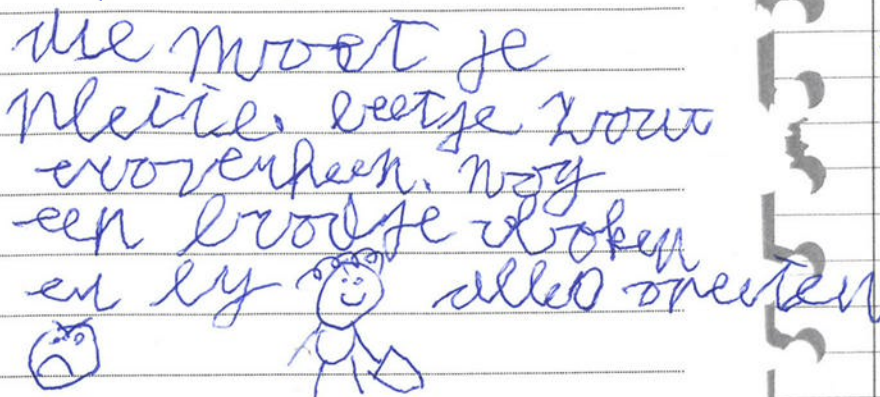 die moet je
plette. beetje zout
eroverheen. nog
een broodje koken
en alles opeeten